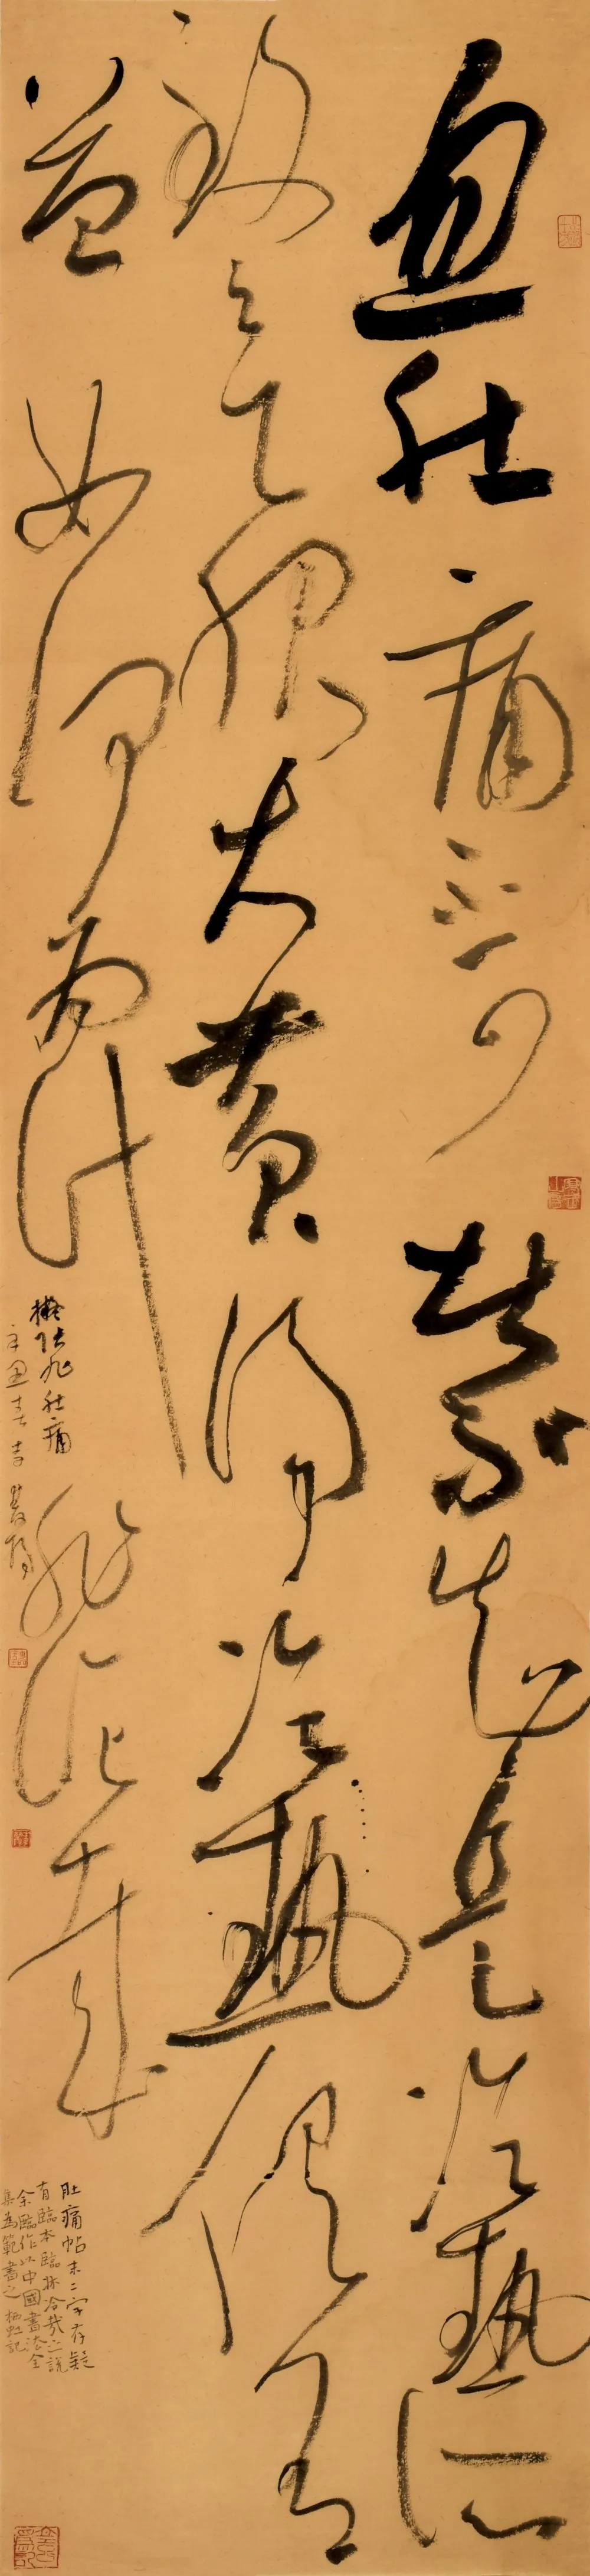 忽肚痛不可堪不知是冷熱所
致欲服大黃湯冷熱俱有
益如何為計非
擬張旭肚痛
辛丑春吉
肚痛帖末二字存疑
有臨本臨林冷哉之說
余臨作以中國書法全
集為範書之栖虹記